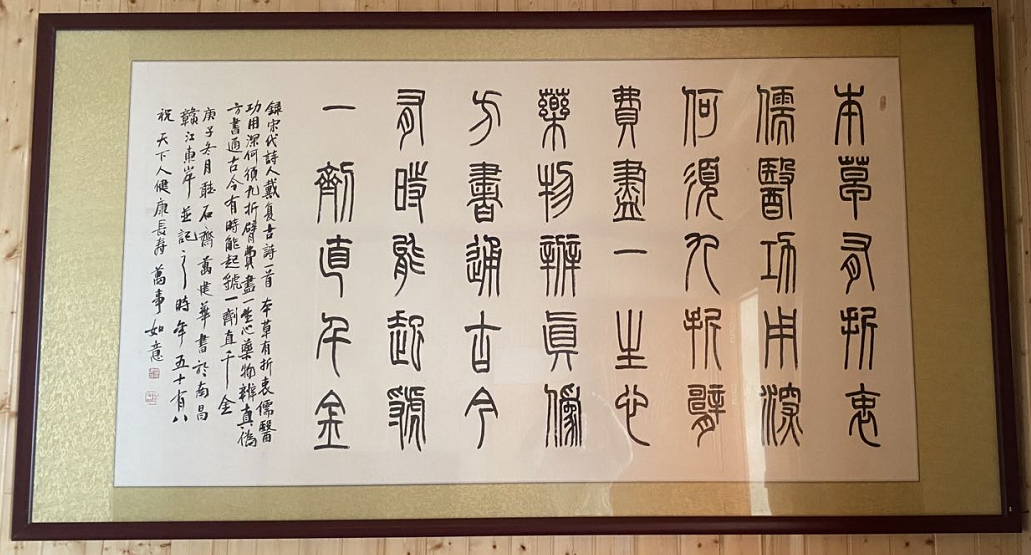 本草有折衷
儒醫功用深
何須九折臂
費盡一生心
藥物辨真偽
方書通古今
有時能起號
一劑直千金
錄宋代詩人戴复古詩一首 本草有折衷儒醫
功用深何須九折臂費盡一生心藥物辨真偽
方書通古今有時能起號一劑直千金
庚子冬月 石齋萬建華書於南昌
贛江東岸並記之時年五十有八
祝天下人健康長壽萬事如意